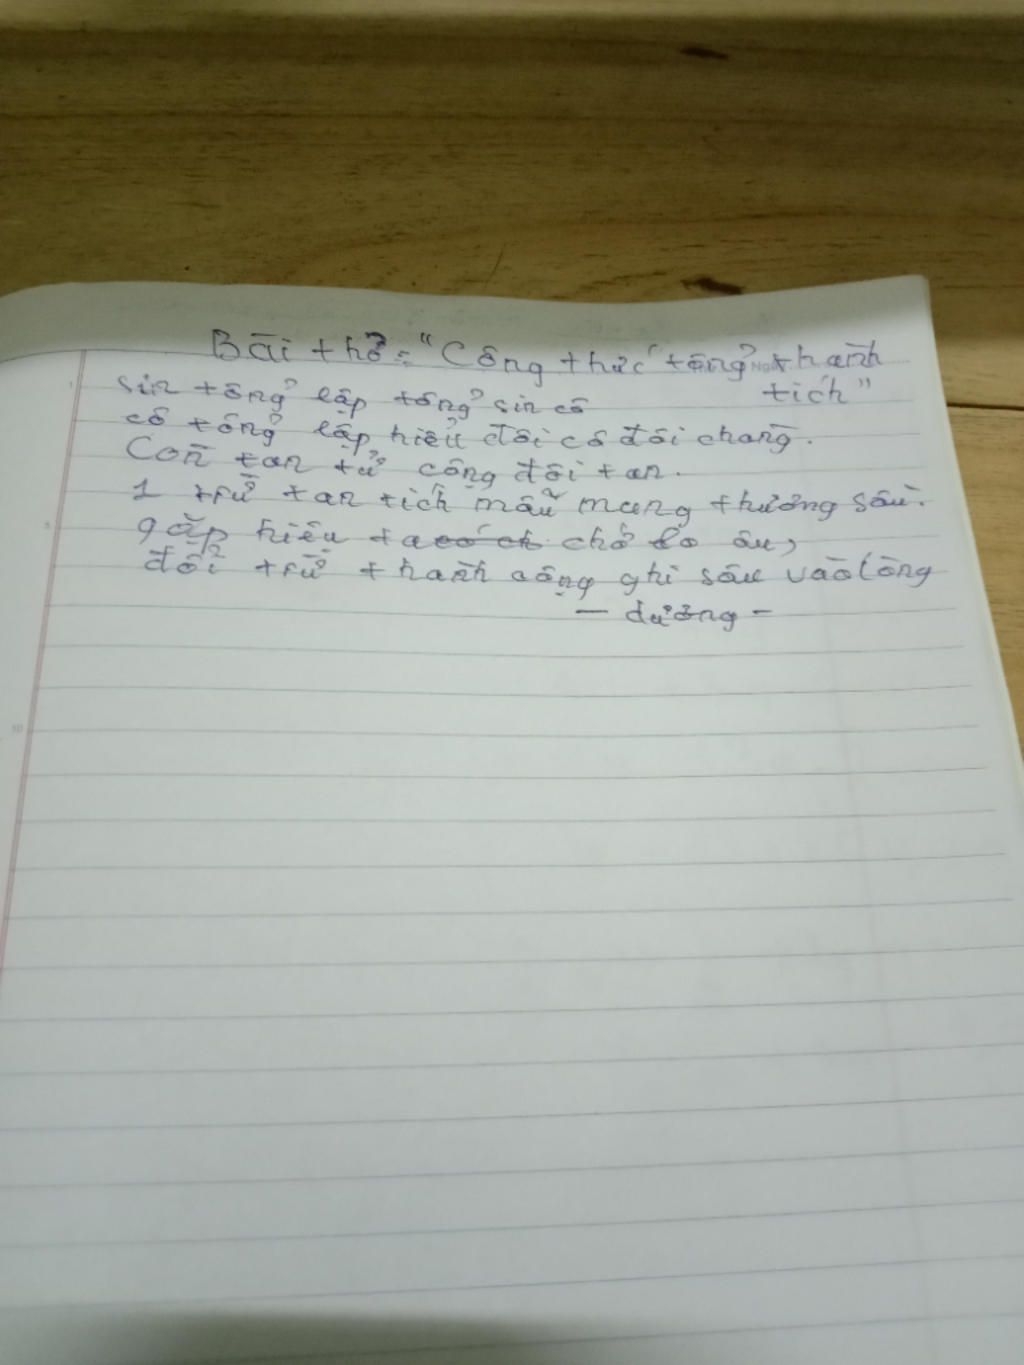 Bài thơ: "Công thức tổng thành
tích"
sin tổng lập tổng sin cô
cô tổng lập hiệu đôi cô đôi chàng.
Còn tan tử cộng đôi tan.
1 trừ tan tích mẫu mang thương sầu.
gặp hiệu ta chớ lo âu,
đổi trừ thành cộng ghi sâu vào lòng
- dương -